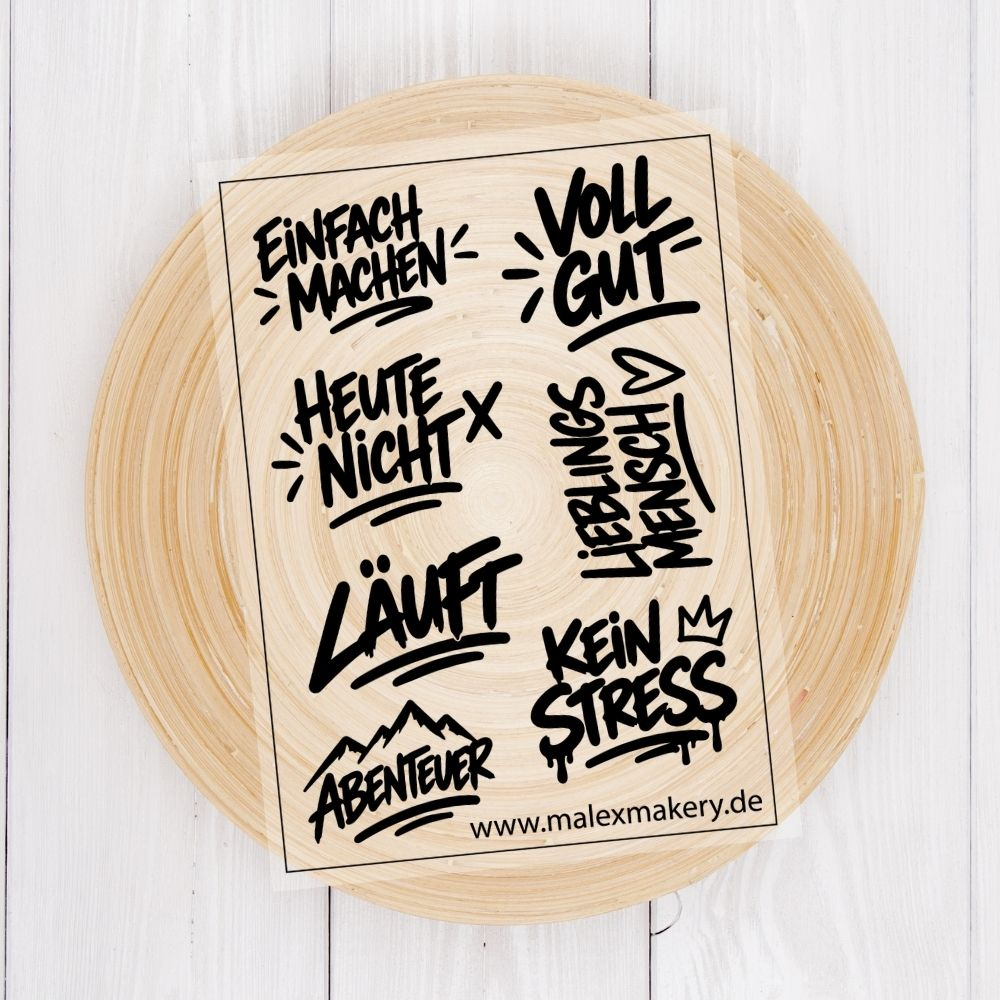 EiNFACH
MACHEN
VOLL
GUT
HEUTE
NiCHT X
LiEBLINGS
MENSCH
LÄUFT
KEiN
STRESS
ABENTEUER
www.malexmakery.de